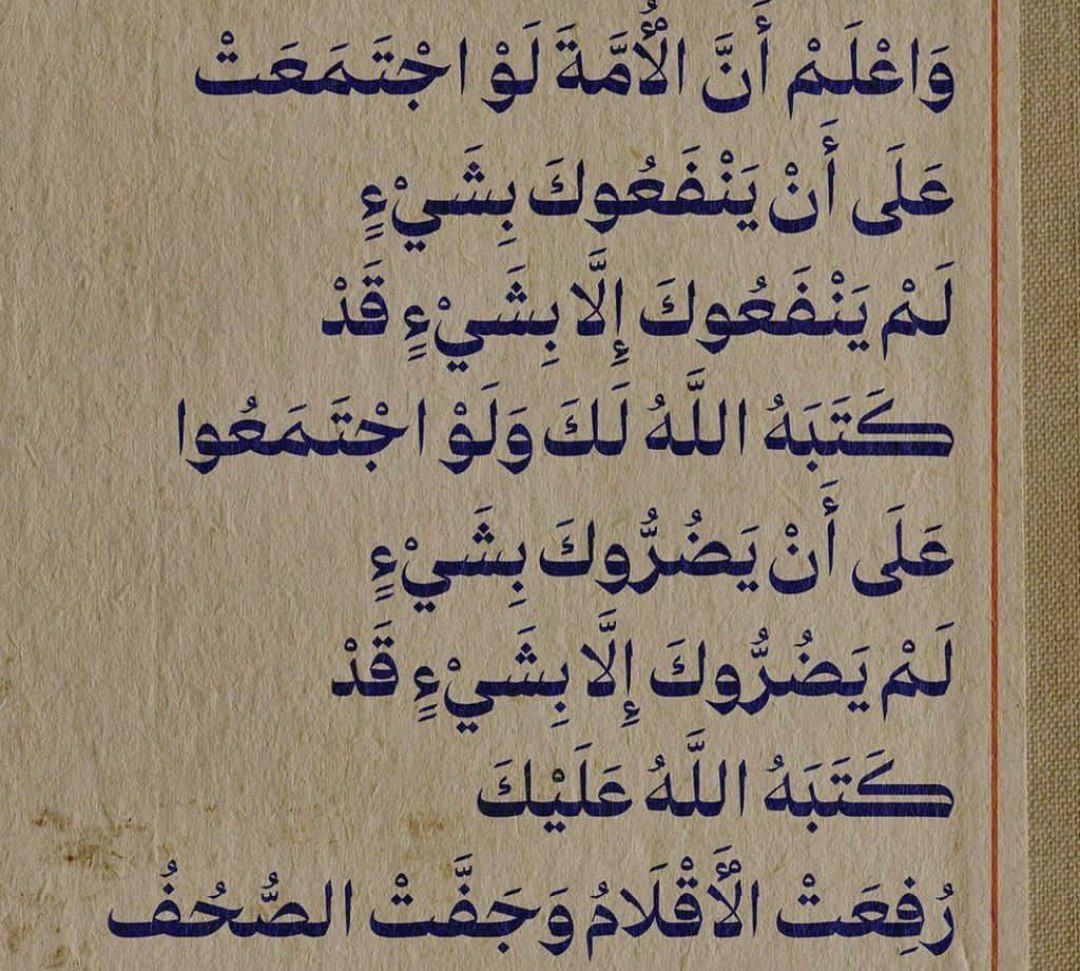 وَاعْلَمْ أَنَّ الْأُمَّةَ لَوْ اجْتَمَعَتْ
عَلَى أَنْ يَنْفَعُوكَ بِشَيْءٍ
لَمْ يَنْفَعُوكَ إِلَّا بِشَيْءٍ قَدْ
كَتَبَهُ اللَّهُ لَكَ وَلَوْ اجْتَمَعُوا
عَلَى أَنْ يَضُرُّوكَ بِشَيْءٍ
لَمْ يَضُرُّوكَ إِلَّا بِشَيْءٍ قَدْ
كَتَبَهُ اللَّهُ عَلَيْكَ
رُفِعَتْ الْأَقْلَامُ وَجَفَّتْ الصُّحُفُ